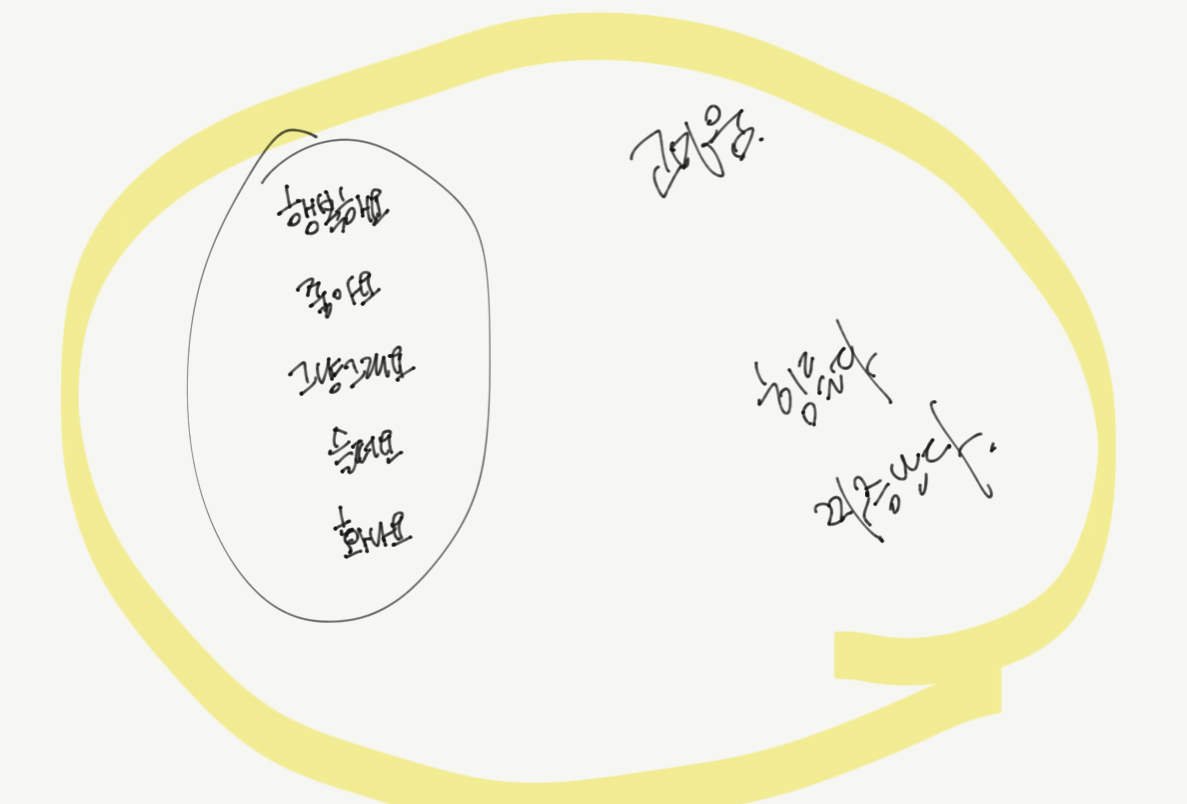 행복해요
좋아요
그냥그래요
슬퍼요
화나요
고마움.
힘줬다
짜증난다.